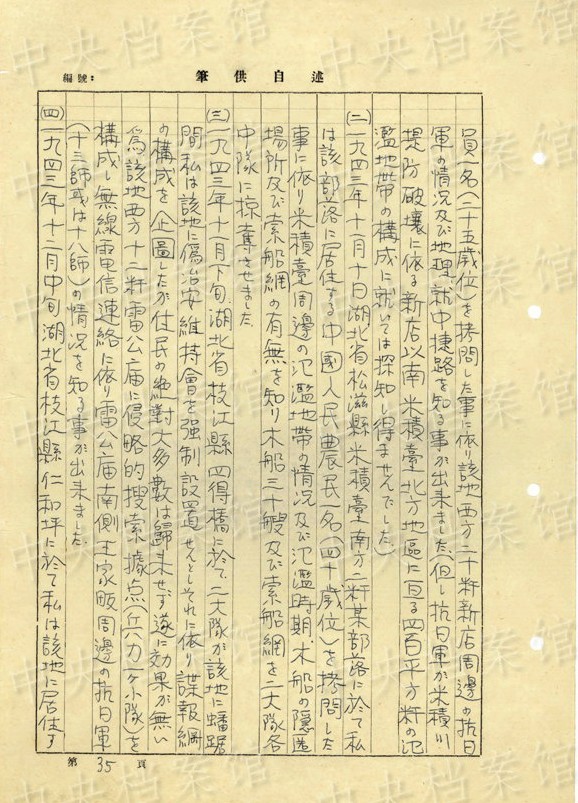 編號：
筆供自述
員一名(二十五歳位)を拷問した事に依り該地西方二十粁新店周邊の抗日
軍の情况及び地理、就中捷路を知る事が出来ました。(但し抗日軍が米積川
堤防破壞に依る新店以南米積臺北方地區に亘る四百平方粁の氾
濫地帯の構成に就いては探知し得ませんでした)
(二)一九四三年十一月十日湖北省松滋縣米積臺南方二粁某部落に於て私
は該部落に居住する中國人民農民一名(四十歳位)を拷問した
事に依り米積臺周邊の氾濫地帯の情况及び氾濫時期、木船の隠匿
場所及び索船網の有無を知り木船三十艘及び索船網を二大隊各
中隊に掠奪させました。
(三)一九四三年十一月下旬湖北省枝江縣四得橋に於て、二大隊が該地に蟠踞
間私は該地に僞治安維持會を强制設置せんとしそれに依り諜報網
の構成を企圖したが住民の絶對大多數は歸来せず遂に効果が無い
爲該地西方十二粁雷公庙に侵略的搜索據点(兵力一ヶ小隊)を
構成し無線電信連絡に依り雷公庙南側王家畈周邊の抗日軍
(十三師或は十八師)の情况を知る事が出来ました。
(四)一九四三年十二月中旬湖北省枝江縣仁和坪に於て私は該地に居住す
第35頁
中央档案馆